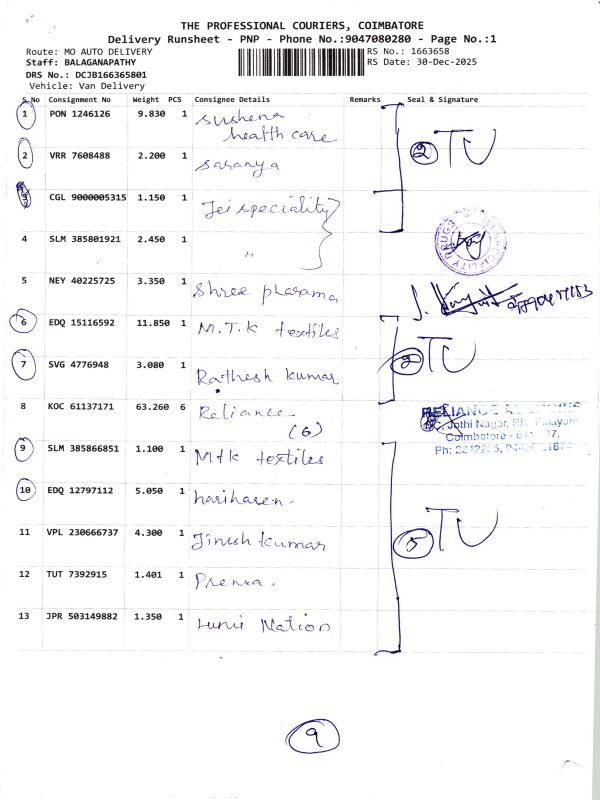 THE PROFESSIONAL COURIERS, COIMBATORE
Delivery Runsheet - PNP - Phone No.:9047080280 - Page No.:1
Route: MO AUTO DELIVERY RS No.: 1663658
Staff: BALAGANAPATHY RS Date: 30-Dec-2025
DRS No.: DCJB166365801
Vehicle: Van Delivery
S.No Consignment No Weight PCS Consignee Details Remarks Seal & Signature
1 PON 1246126 9.830 1 Sushena
health care
2 VRR 7608488 2.200 1 Saranya
② TU
3 CGL 9000005315 1.150 1 Jei speciality
4 SLM 385801921 2.450 1 "
5 NEY 40225725 3.350 1 Shree pharama
6 EDQ 15116592 11.850 1 M.T.K textiles
7 SVG 4776948 3.080 1 Rathesh kumar
② TU
8 KOC 61137171 63.260 6 Reliance
(6)
RELIANCE
Jothi Nagar,
Coimbatore
9 SLM 385866851 1.100 1 Mtk textiles
10 EDQ 12797112 5.050 1 hariharen.
11 VPL 230666737 4.300 1 Jinesh kumar
⑤ TU
12 TUT 7392915 1.401 1
13 JPR 503149882 1.350 1 Nation
9